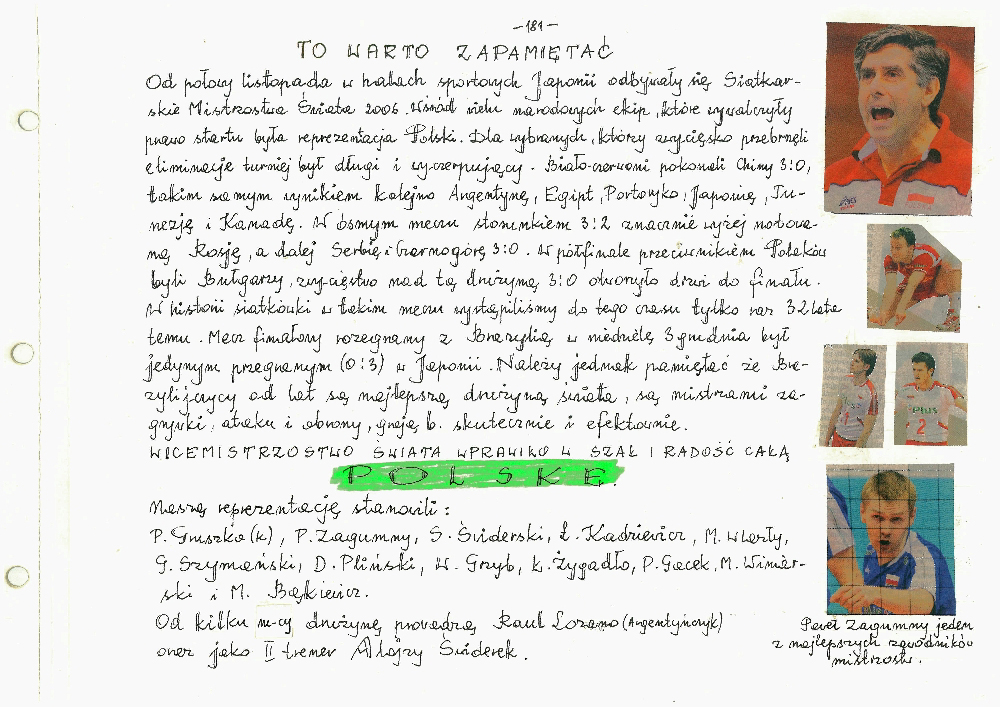 -181-
TO WARTO ZAPAMIĘTAĆ
Od połowy listopada w halach sportowych Japonii odbywały się Siatkar-
skie Mistrzostwa Świata 2006. Wśród wielu narodowych ekip, które wywalczyły
prawo startu była reprezentacja Polski. Dla wybranych, którzy zwycięsko przebrnęli
eliminacje turniej był długi i wyczerpujący. Biało-czerwoni pokonali Chiny 3:0,
takim samym wynikiem kolejno Argentynę, Egipt, Portoryko, Japonię, Tu-
nezję i Kanadę. W ósmym meczu stosunkiem 3:2 znacznie wyżej notowa-
ną Rosję, a dalej Serbię i Czarnogórę 3:0. W półfinale przeciwnikiem Polaków
byli Bułgarzy, zwycięstwo nad tą drużyną 3:0 otworzyło drzwi do finału.
W historii siatkówki w takim meczu wystąpiliśmy do tego czasu tylko raz 32 lata
temu. Mecz finałowy rozegrany z Brazylią w niedzielę 3 grudnia był
jedynym przegranym (0:3) w Japonii. Należy jednak pamiętać że Bra-
zylijczycy od lat są najlepszą drużyną świata, są mistrzami za-
grywki, ataku i obrony, grają b. skutecznie i efektownie.
WICEMISTRZOSTWO ŚWIATA WPRAWIŁO W SZAŁ I RADOŚĆ CAŁĄ
POLSKĘ.
Naszą reprezentację stanowili:
P. Gruszka (k), P. Zagumny, S. Świderski, Ł. Kadziewicz, M. Wlazły,
G. Szymański, D. Pliński, W. Grzyb, Ł. Żygadło, P. Gacek, M. Winiar-
ski i M. Bąkiewicz.
Od kilku m-cy drużynę prowadzą Raul Lozano (Argentyńczyk)
oraz jako II trener Alojzy Świderek.
PLUS
2
Paweł Zagumny jeden
z najlepszych zawodników
mistrzostw.